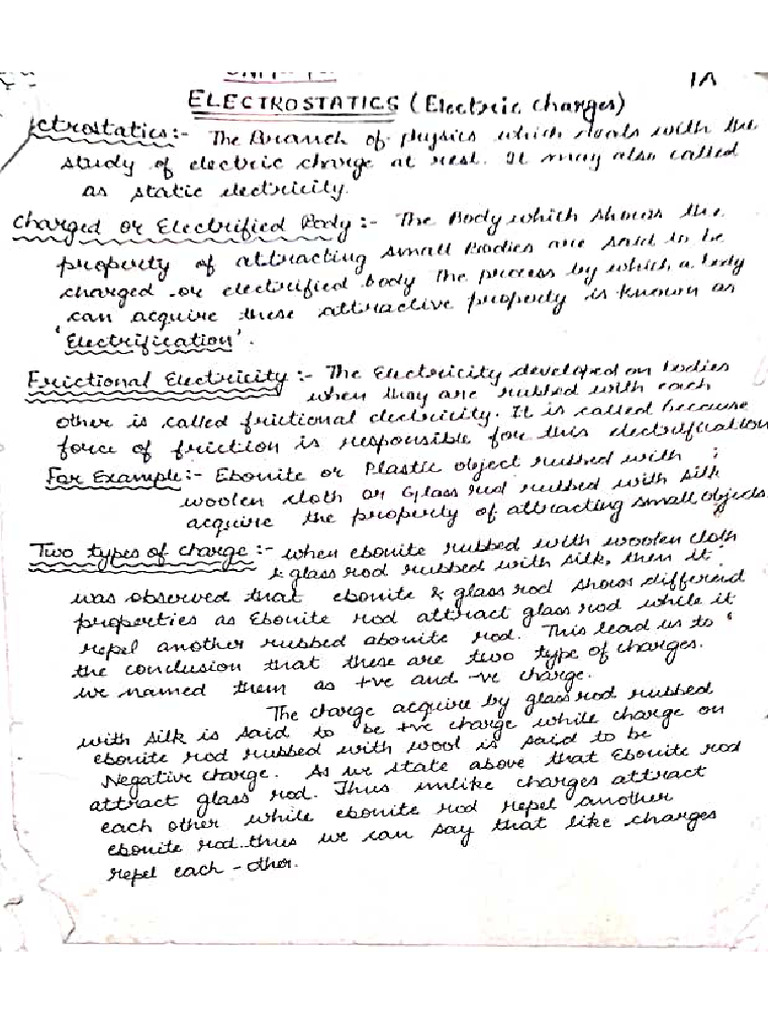 1A
ELECTROSTATICS (Electric charges)
ctrostatics:- The Branch of physics which deals with the
study of electric charge at rest. It may also called
as static electricity.
Charged or Electrified Body:- The Body which shows the
property of attracting small Bodies are said to be
charged or electrified body The process by which a body
can acquire these attractive property is known as
'Electrification'.
Frictional Electricity:- The Electricity developed on bodies
when they are rubbed with each
other is called frictional electricity. It is called because
force of friction is responsible for this electrification
For Example:- Ebonite or Plastic object rubbed with
woolen cloth or Glass rod rubbed with silk
acquire the property of attracting small objects
Two types of charge:- when ebonite rubbed with woolen cloth
& glass rod rubbed with silk, then it
was observed that ebonite & glass rod shows different
properties as Ebonite rod attract glass rod while it
repel another rubbed abonite rod. This lead us to
the conclusion that these are two type of charges.
we named them as +ve and -ve charge.
The charge acquire by glass rod rubbed
with silk is said to be +ve charge while charge on
ebonite rod rubbed with wool is said to be
Negative charge. As we state above that Ebonite rod
attract glass rod. Thus unlike charges attract
each other while ebonite rod repel another
ebonite rod..thus we can say that like charges
repel each-other.